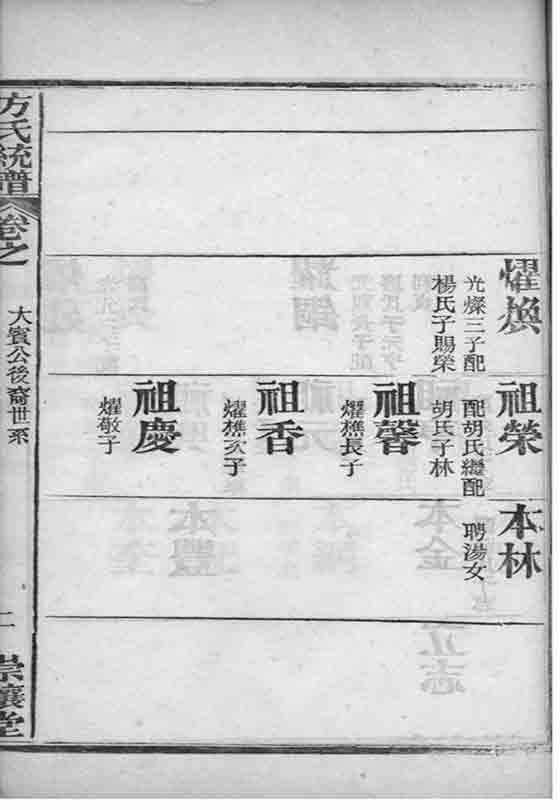 燿煥
光燦三子配
楊氏子賜榮
祖榮
配胡氏繼配
胡氏子林
祖馨
燿樵長子
祖香
燿樵次子
祖慶
燿敬子
本林
聘湯女
方氏統譜
卷之
大賓公後裔世系
二
崇讓堂